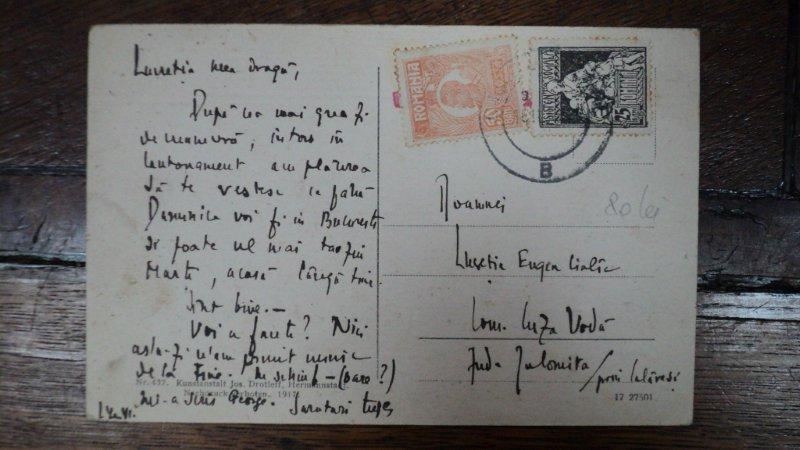 Lucreția mea dragă,
După cea mai grea zi
de manevră, întors în
cantonament am plăcerea
să te vestesc că până
Duminică voi fi in București
și poate cel mai târziu
Marți, acasă lângă tine.
Sunt bine.—
Voi ce faceți? Nici
asta-zi n'am primit nimic
de la tine. In schimb — (oare?)
mi-a scris George. Sărutări
Nr. 437. Kunstanstalt Jos. Drotleff, Hermannstadt
Nachdruck verboten. 1917
ROMANIA
50
B
80 lei
Doamnei
Lucreția Eugen
Com. Cuza Vodă
Jud. Ialomița / prin Călărași
17 27501